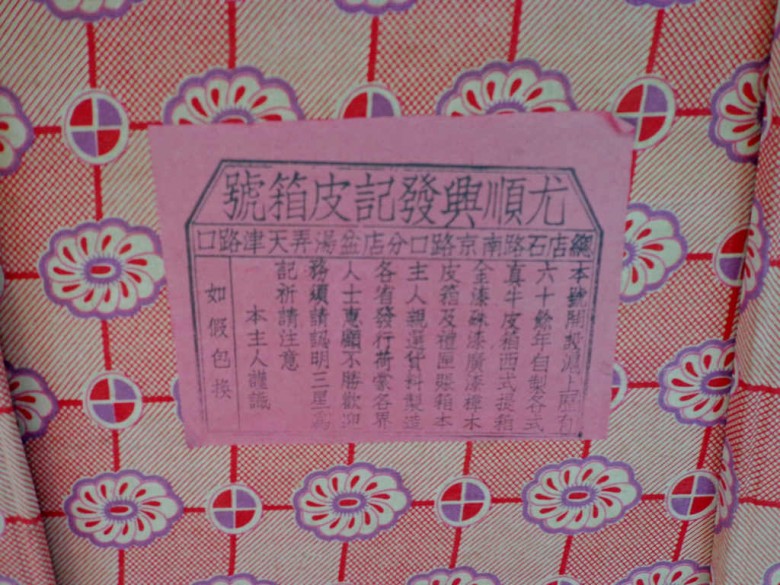 尤順興發記皮箱號
總店石路南京路口分店盆湯弄天津路口
本號開設滬上歷有
六十餘年自製各式
真牛皮箱西式提箱
金漆硃漆廣漆樟木
皮箱及禮匣賬箱本
主人親運貨料製造
各省發行荷蒙各界
人士惠顧不勝歡迎
務須請認明三星為
記祈請注意
本主人謹識
如假包換